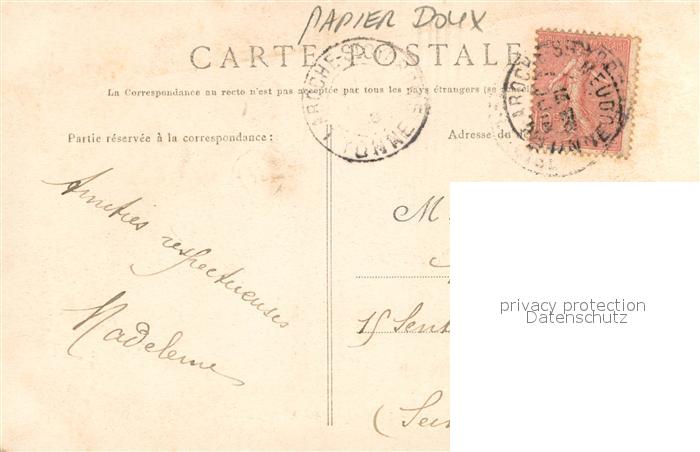 PAPIER DOUX
CARTE POSTALE
La Correspondance au recto n'est pas acceptée par tous les pays étrangers (se
Partie réservée à la correspondance :
Adresse du
YONNE
M
Amitiés respectueuses
Madeleine
15 Sent
(Sei
privacy protection
Datenschutz